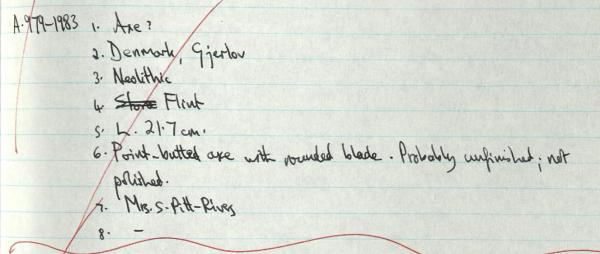 A.979-1983 1. Axe?
2. Denmark, Gjerlov
3. Neolithic
4. Stone Flint
5. L. 21.7 cm.
6. Point-butted axe with rounded blade. Probably unfinished; not
polished.
7. Mrs. S. Pitt-Rivers
8. –